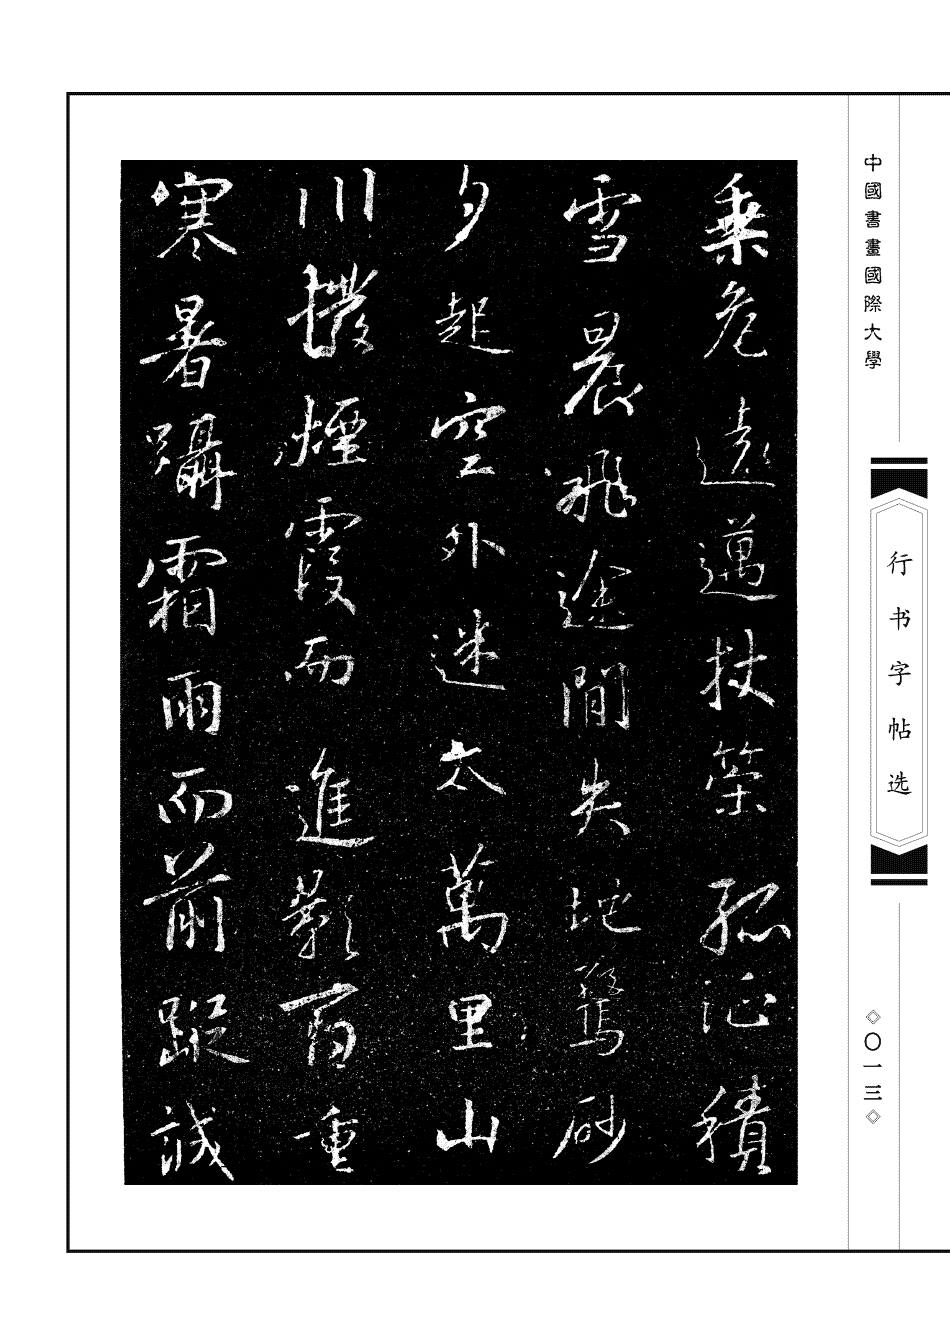 乘危遠邁杖策孤征積
雪晨飛途閒失地驚砂
夕起空外迷天萬里山
川撥煙霞而進影百重
寒暑躡霜雨而前蹤誠
中國書畫國際大學
行书字帖选
◇〇一三◇